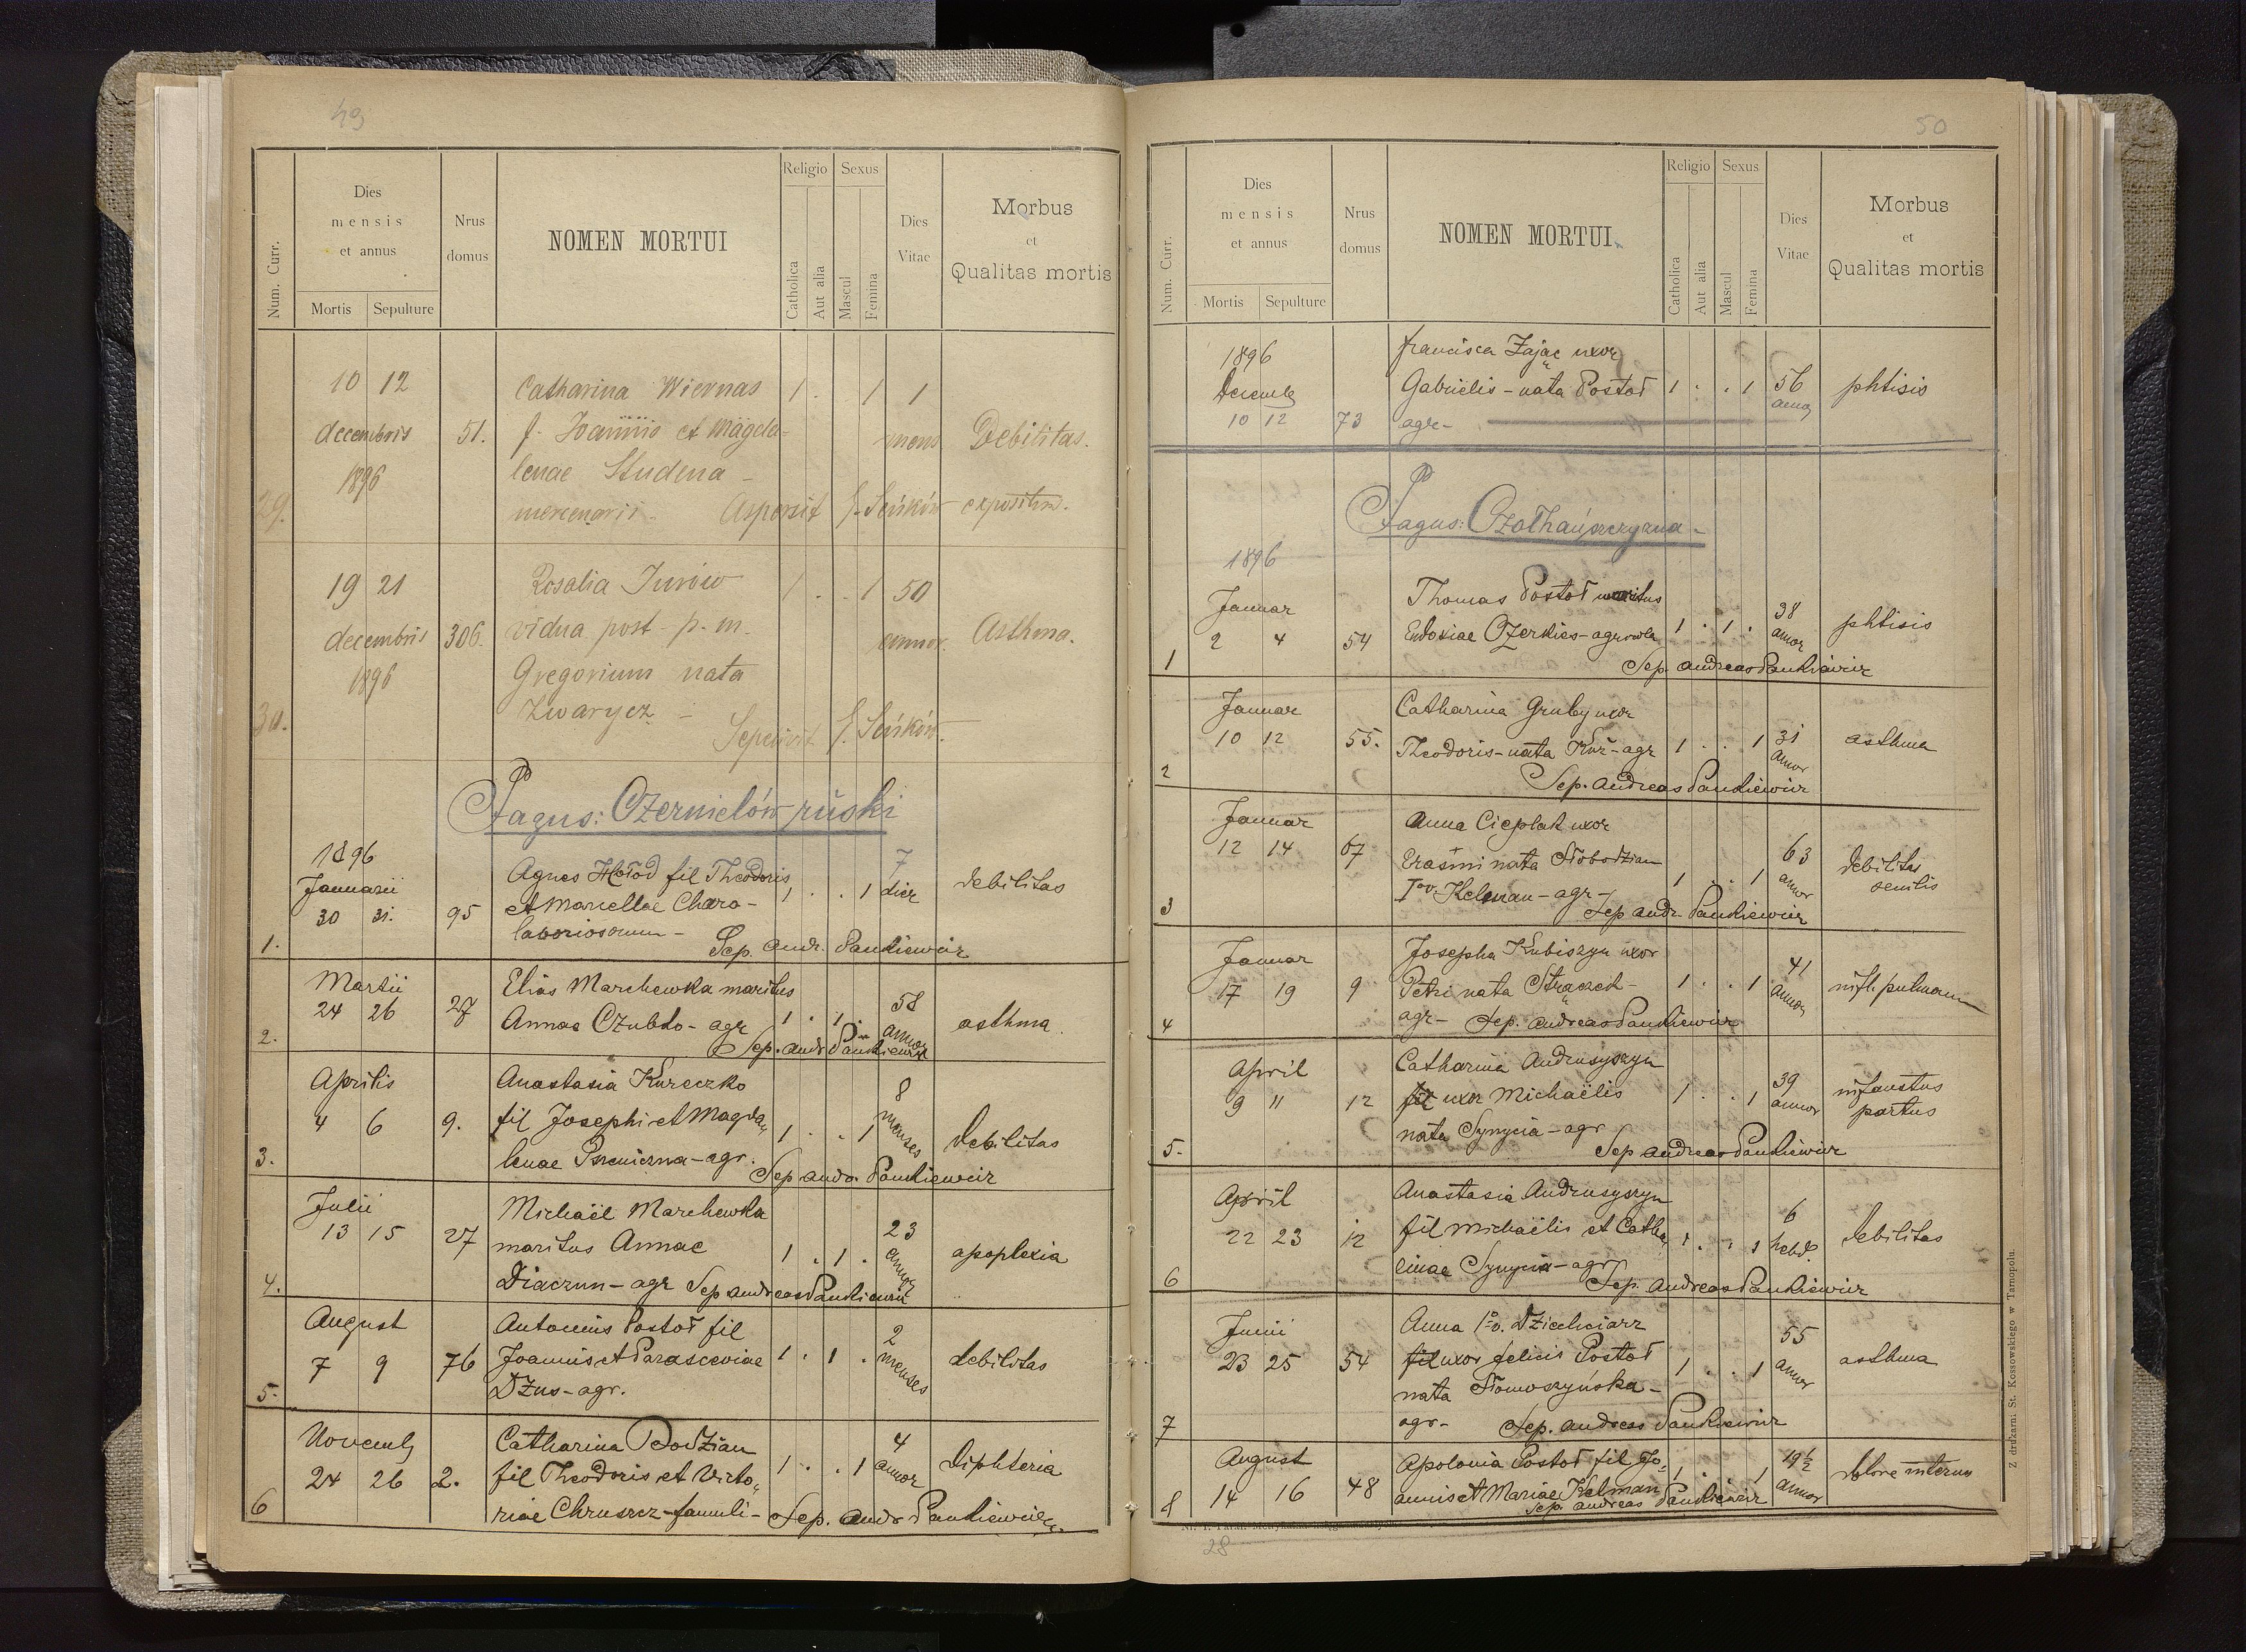 49
Num. Curr.
Dies
mensis
et annus
Mortis Sepulture
Nrus
domus
NOMEN MORTUI
Religio
Catholica
Aut alia
Sexus
Mascul
Femina
Dies
Vitae
Morbus
et
Qualitas mortis
10 12 Catharina Wiernas 1 . 1 1
decembris 51. f. Joannis et Magda- mens Debilitas.
1896 lenae Studena -
29. mercenarii. Aspersit expositus.
19 21 Rosalia Jurów 1 . . 1 50
decembris 306. vidua post p. m. annor. Asthma.
1896 Gregorium nata
30. Zwarycz - Sepelivit
Pagus: Czernielów ruski
1896 Agnes Hołod fil Theodoris 7
Januarii et Marcellae Chara- 1 . . 1 dier debilitas
30 31. 95 laboriosorum -
1. Sep. Andr. Pankiewicz
Martii Elias Marchewka maritus
24 26 27 Annae Czubko - agr 1 . 1 . 58 annor asthma
2. Sep. Andr Pankiewicz
Aprilis Anastasia Kureczko 8
4 6 9. fil Josephi et Magda„ 1 . . 1 menses Debilitas
3. lenae Pszeniczna - agr. Sep Andr Pankiewicz
Julii Michaël Marchewka
13 15 27 maritus Annae 1 . 1 . 23 annor apoplexia
4. Diaczun - agr Sep Andreas Pankiewicz
August Antonius Postoł fil 2
7 9 76 Joannis et Parasceviae 1 . 1 . menses debilitas
5. Dżus - agr.
Novemb Catharina Bodzian 4
24 26 2. fil Theodoris et Victo„ 1 . . 1 annor Diphteria
6 riae Chruszcz - famuli - Sep. Andr Pankiewicz
50
Num. Curr.
Dies
mensis
et annus
Mortis Sepulture
Nrus
domus
NOMEN MORTUI
Religio
Catholica
Aut alia
Sexus
Mascul
Femina
Dies
Vitae
Morbus
et
Qualitas mortis
1896 Francisca Zając uxor
Decemb Gabrielis - nata Postoł 1 . . 1 56 phtisis
10 12 73 agr -
Pagus: Czołhańszczyzna -
1896
Januar Thomas Postoł maritus 38
2 4 54 Eudoxiae Czerkies - agricola 1 . 1 . annor phtisis
1 Sep. Andreas Pankiewicz
Januar Catharina Gruby uxor
10 12 55. Theodoris - nata Kuź - agr 1 . . 1 31 annor asthma
2 Sep. Andreas Pankiewicz
Januar Anna Cieplak uxor
12 14 67 Erasmi nata Słobodzian 63 debilitas
1ov. Kelman - agr - 1 . . 1 annor senilis
3 Sep Andr. Pankiewicz
Januar Josepha Kubiszyn uxor 41
17 19 9 Petri nata Strączek - 1 . . 1 annor infl. pulmonum
4 agr - Sep. Andreas Pankiewicz
April Catharina Andrusyszyn 39
9 11 12 fil uxor Michaëlis 1 . . 1 annor infaustus
nata Synycia - agr partus
5. Sep Andreas Pankiewicz
April Anastasia Andrusyszyn 6
22 23 12 fil Michaëlis et Catha„ 1 . . 1 hebd. debilitas
6 rinae Synycia - agr Sep. Andreas Pankiewicz
Junii Anna 1o v. Dziechciarz 55
23 25 54 fil uxor Felicis Postoł 1 . . 1 annor asthma
nata Słomoszyńska -
7 agr - Sep. Andreas Pankiewicz
August Apolonia Postoł fil Jo„ 19½
8 14 16 48 annis et Mariae Kelman 1 . 1 annor dolore interno
Sep. Andreas Pankiewicz
28
Z drukarni St. Kossowskiego w Tarnopolu.